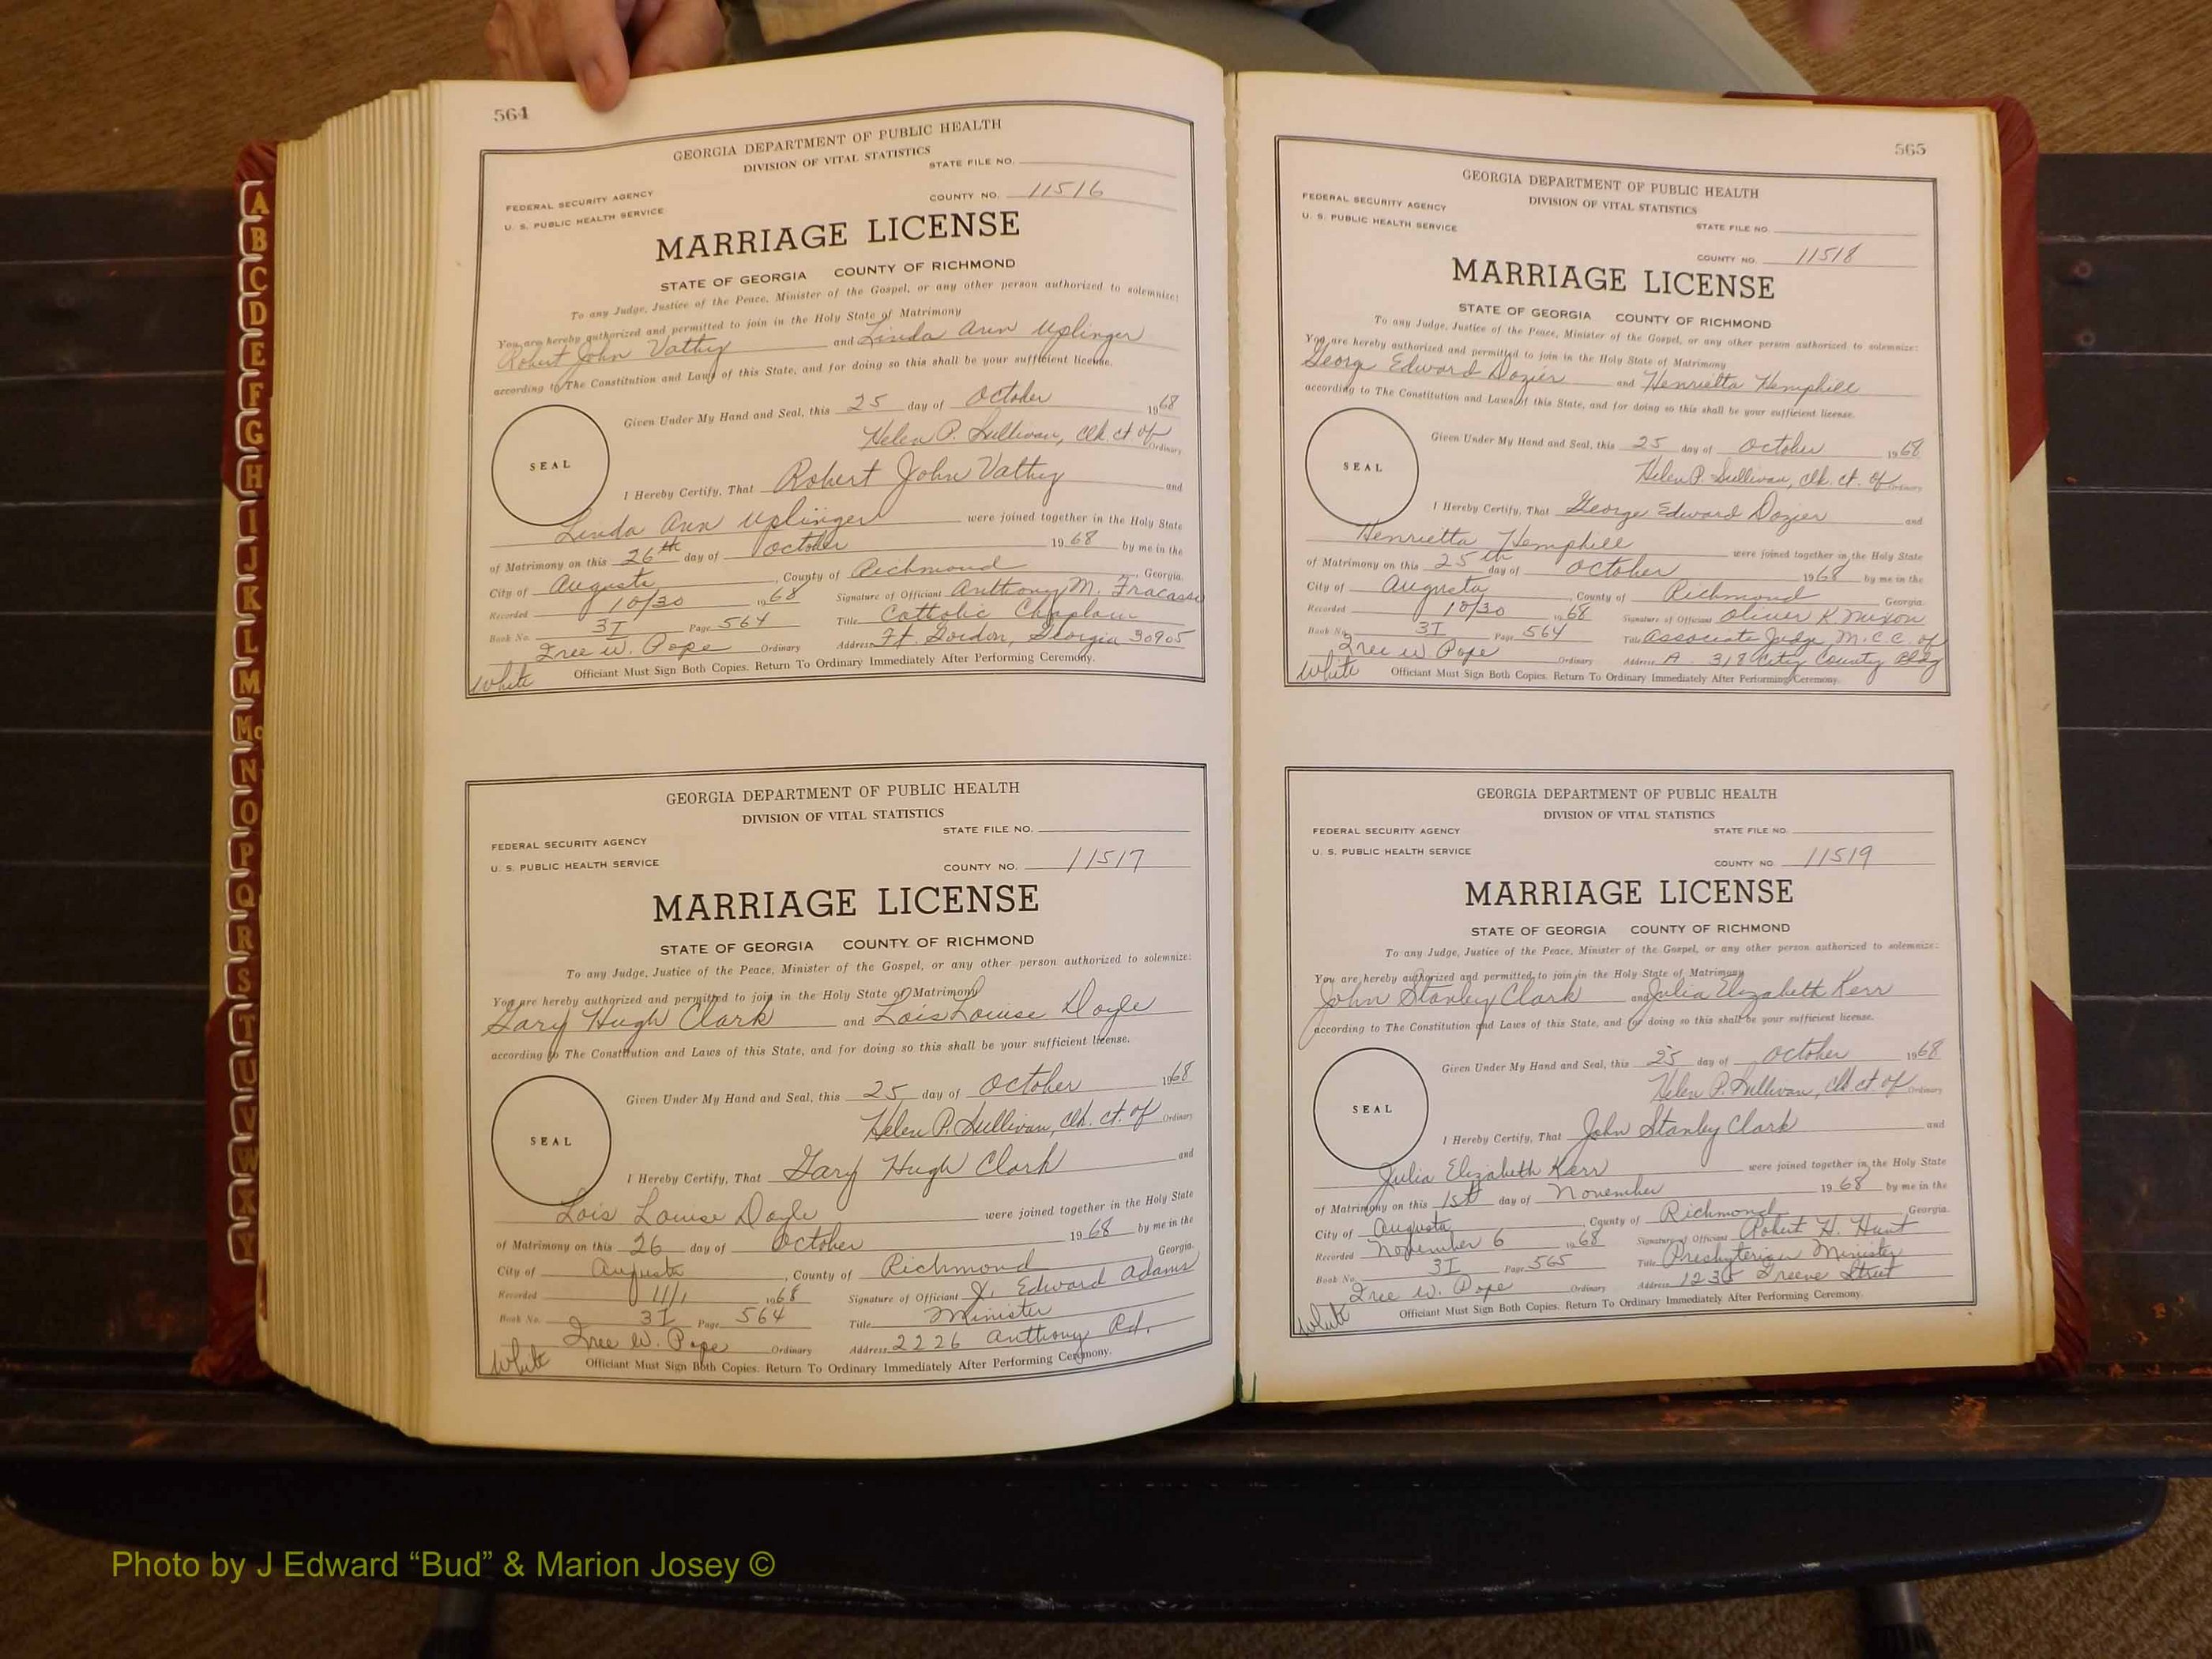 564
GEORGIA DEPARTMENT OF PUBLIC HEALTH
DIVISION OF VITAL STATISTICS
STATE FILE NO.
FEDERAL SECURITY AGENCY
U. S. PUBLIC HEALTH SERVICE
COUNTY NO. 11516
MARRIAGE LICENSE
STATE OF GEORGIA COUNTY OF RICHMOND
To any Judge, Justice of the Peace, Minister of the Gospel, or any other person authorized to solemnize:
You are hereby authorized and permitted to join in the Holy State of Matrimony
Robert John Vathy and Linda Ann Uplinger
according to The Constitution and Laws of this State, and for doing so this shall be your sufficient license.
Given Under My Hand and Seal, this 25 day of October 1968
Helen P. Sullivan, Clk. ct. of Ordinary
SEAL
I Hereby Certify, That Robert John Vathy and
Linda Ann Uplinger were joined together in the Holy State
of Matrimony on this 26th day of October 1968 by me in the
City of Augusta, County of Richmond, Georgia.
Recorded 10/30 1968 Signature of Officiant Anthony M. Fracasse
Book No. 3I Page 564 Title Catholic Chaplain
Iree W. Pope Ordinary Address Ft. Gordon, Georgia 30905
White Officiant Must Sign Both Copies. Return To Ordinary Immediately After Performing Ceremony.
GEORGIA DEPARTMENT OF PUBLIC HEALTH
DIVISION OF VITAL STATISTICS
STATE FILE NO.
FEDERAL SECURITY AGENCY
U. S. PUBLIC HEALTH SERVICE
COUNTY NO. 11517
MARRIAGE LICENSE
STATE OF GEORGIA COUNTY OF RICHMOND
To any Judge, Justice of the Peace, Minister of the Gospel, or any other person authorized to solemnize:
You are hereby authorized and permitted to join in the Holy State of Matrimony
Gary Hugh Clark and Lois Louise Doyle
according to The Constitution and Laws of this State, and for doing so this shall be your sufficient license.
Given Under My Hand and Seal, this 25 day of October 1968
Helen P. Sullivan, Clk. ct. of Ordinary
SEAL
I Hereby Certify, That Gary Hugh Clark and
Lois Louise Doyle were joined together in the Holy State
of Matrimony on this 26 day of October 1968 by me in the
City of Augusta, County of Richmond, Georgia.
Recorded 11/1 1968 Signature of Officiant J. Edward Adams
Book No. 3I Page 564 Title Minister
Iree W. Pope Ordinary Address 2226 Anthony Rd.
White Officiant Must Sign Both Copies. Return To Ordinary Immediately After Performing Ceremony.
565
GEORGIA DEPARTMENT OF PUBLIC HEALTH
DIVISION OF VITAL STATISTICS
FEDERAL SECURITY AGENCY
U. S. PUBLIC HEALTH SERVICE
STATE FILE NO.
COUNTY NO. 11518
MARRIAGE LICENSE
STATE OF GEORGIA COUNTY OF RICHMOND
To any Judge, Justice of the Peace, Minister of the Gospel, or any other person authorized to solemnize:
You are hereby authorized and permitted to join in the Holy State of Matrimony
Georg Edward Dozier and Henrietta Hemphill
according to The Constitution and Laws of this State, and for doing so this shall be your sufficient license.
Given Under My Hand and Seal, this 25 day of October 1968
Helen P. Sullivan, Clk. ct. of Ordinary
SEAL
I Hereby Certify, That George Edward Dozier and
Henrietta Hemphill were joined together in the Holy State
of Matrimony on this 25th day of October 1968 by me in the
City of Augusta, County of Richmond Georgia.
Recorded 10/30 1968 Signature of Officiant Oliver K. Mixon
Book No. 3I Page 564 Title Associate Judge, M.C.C. of
Iree W Pope Ordinary Address A. 318 City County Bldg
White Officiant Must Sign Both Copies. Return To Ordinary Immediately After Performing Ceremony.
GEORGIA DEPARTMENT OF PUBLIC HEALTH
DIVISION OF VITAL STATISTICS
FEDERAL SECURITY AGENCY
STATE FILE NO.
U. S. PUBLIC HEALTH SERVICE
COUNTY NO. 11519
MARRIAGE LICENSE
STATE OF GEORGIA COUNTY OF RICHMOND
To any Judge, Justice of the Peace, Minister of the Gospel, or any other person authorized to solemnize:
You are hereby authorized and permitted to join in the Holy State of Matrimony
John Stanley Clark and Julia Elizabeth Kerr
according to The Constitution and Laws of this State, and for doing so this shall be your sufficient license.
Given Under My Hand and Seal, this 25 day of October 1968
Helen P. Sullivan, Clk ct. of Ordinary
SEAL
I Hereby Certify, That John Stanley Clark and
Julia Elizabeth Kerr were joined together in the Holy State
of Matrimony on this 1st day of November 1968 by me in the
City of Augusta, County of Richmond, Georgia.
Recorded November 6 1968 Signature of Officiant Robert H. Hunt
Book No. 3I Page 565 Title Presbyterian Minister
Iree W. Pope Ordinary Address 1235 Greene Street
White Officiant Must Sign Both Copies. Return To Ordinary Immediately After Performing Ceremony.
A
B
C
D
E
F
G
H
I
J
K
L
M
Mc
N
O
P
Q
R
S
T
U
V
W
X
Y
Photo by J Edward “Bud” & Marion Josey ©